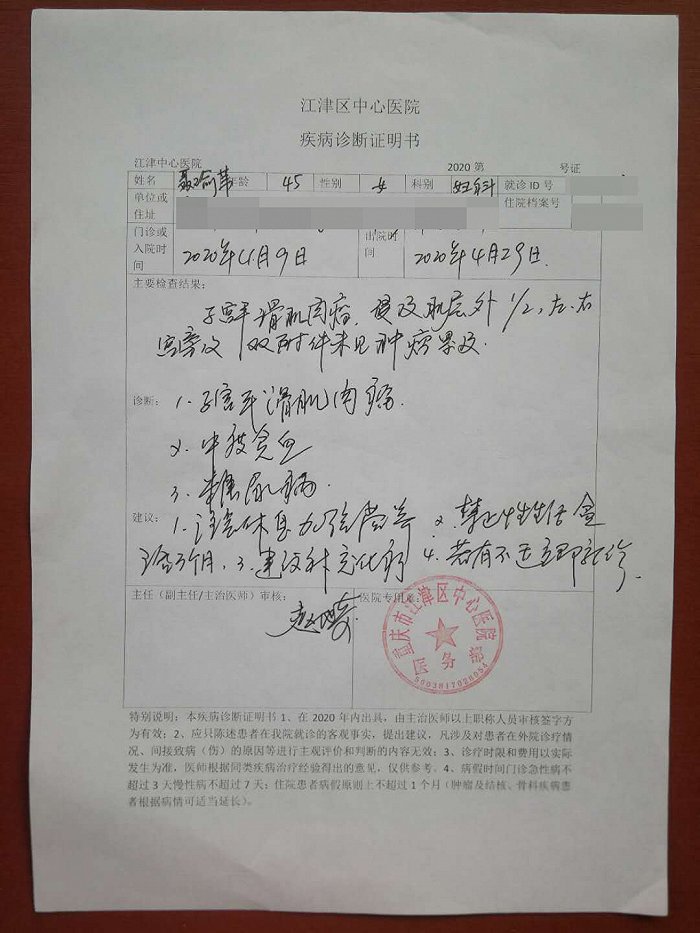 江津区中心医院
疾病诊断证明书
江津中心医院 2020 第 号证
姓名 年龄 45 性别 女 科别 妇科 就诊 ID 号
单位或住址 住院档案号
门诊或入院时间 2020年4月9日 出院时间 2020年4月29日.
主要检查结果:
子宫平滑肌肉瘤, 侵及肌层外 1/2, 左.右
宫旁及 双附件未见肿瘤累及.
诊断: 1. 子宫平滑肌肉瘤.
2. 中度贫血
3. 糖尿病.
建议: 1. 注意休息加强营养 2. 禁止性生活盆
浴3个月, 3. 建议补充化疗 4. 若有不适立即就诊.
主任（副主任/主治医师）审核: 医院专用章:
重庆市江津区中心医院
医务部
5003817028054
特别说明：本疾病诊断证明书 1、在 2020 年内出具，由主治医师以上职称人员审核签字方
为有效；2、应只陈述患者在我院就诊的客观事实，提出建议，凡涉及对患者在外院诊疗情
况、间接致病（伤）的原因等进行主观评价和判断的内容无效；3、诊疗时限和费用以实际
发生为准，医师根据同类疾病治疗经验得出的意见，仅供参考。4、病假时间门诊急性病不
超过 3 天慢性病不超过 7 天；住院患者病假原则上不超过 1 个月（肿瘤及结核、骨科疾病患
者根据病情可适当延长）。